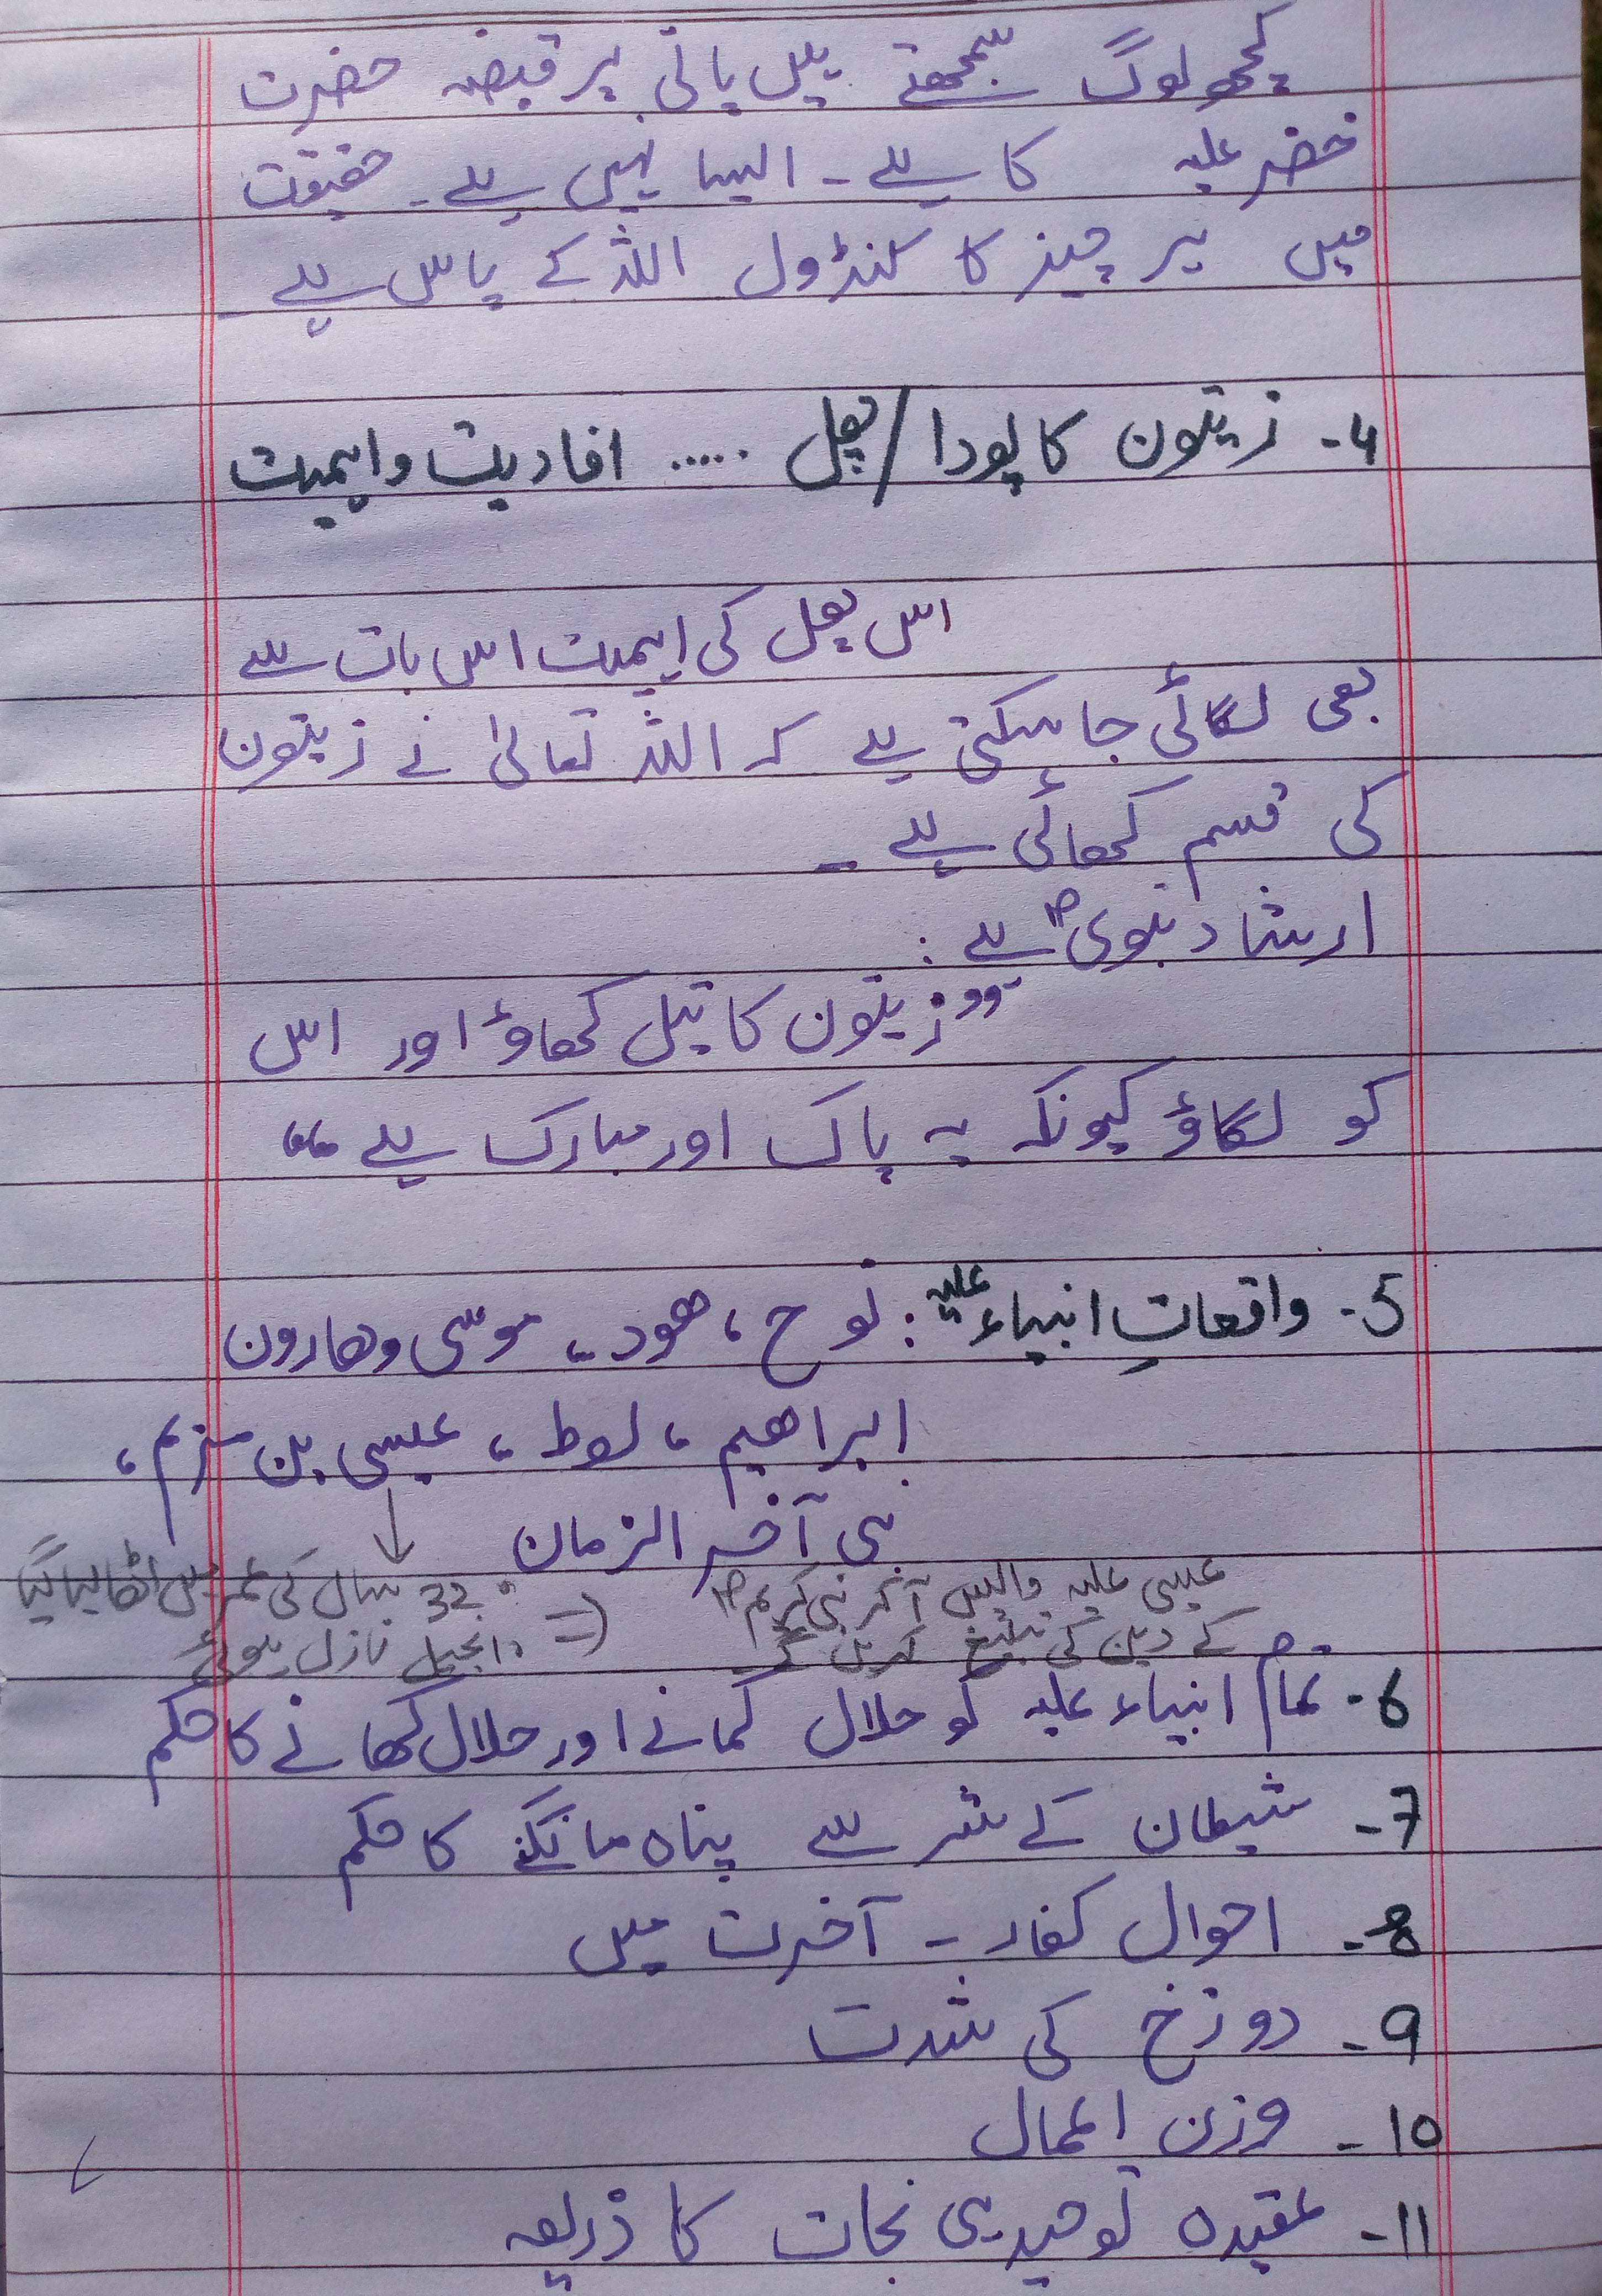 کچھ لوگ سمجھتے ہیں پانی پر قبضہ حضرت
خضر علیہ کا ہے۔ ایسا نہیں ہے۔ حقیقت
میں ہر چیز کا کنٹرول اللہ کے پاس ہے۔
4۔ زیتون کا پودا/پھل ..... افادیت و اہمیت
اس پھل کی اہمیت اس بات سے
بھی لگائی جا سکتی ہے کہ اللہ تعالیٰ نے زیتون
کی قسم کھائی ہے۔
ارشاد نبویؐ ہے:
”زیتون کا تیل کھاؤ اور اس
کو لگاؤ کیونکہ یہ پاک اور مبارک ہے“
5۔ واقعاتِ انبیاء علیہ: نوح، ھود، موسی و ھارون
ابراھیم، لوط، عیسی بن مریم،
نبی آخر الزمان
32 سال کی عمر میں اٹھا لیا گیا
انجیل نازل ہوئی
عیسی علیہ واپس آ کر نبی کریمؐ
کے دین کی تبلیغ کریں گے۔
6۔ تمام انبیاء علیہ کو حلال کمانے اور حلال کھانے کا حکم
7۔ شیطان کے شر سے پناہ مانگنے کا حکم
8۔ احوال کفار۔ آخرت میں
9۔ دوزخ کی شدت
10۔ وزن اعمال
11۔ عقیدہ توحید ہی نجات کا ذریعہ